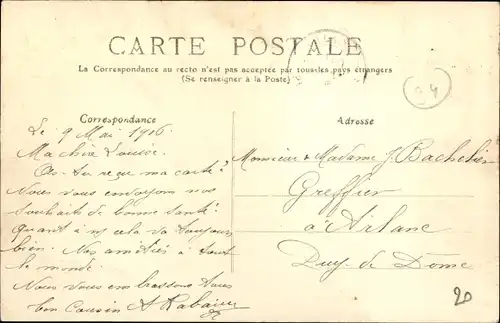 CARTE POSTALE
La Correspondance au recto n'est pas acceptée par tous les pays étrangers
(Se renseigner à la Poste)
Correspondance
Le 9 Mai 1906
Ma chère Louise
As-tu reçue ma carte?
Nous vous envoyons nos
souhaits de bonne santé
quant à nous cela va toujours
bien. Nos amitiés à tout
le monde.
Nous vous embrassons tous
bon Cousin A
Adresse
Monsieur & Madame J. Bachelier
Greffier
à Arlanc
Puy-de Dôme
94
20